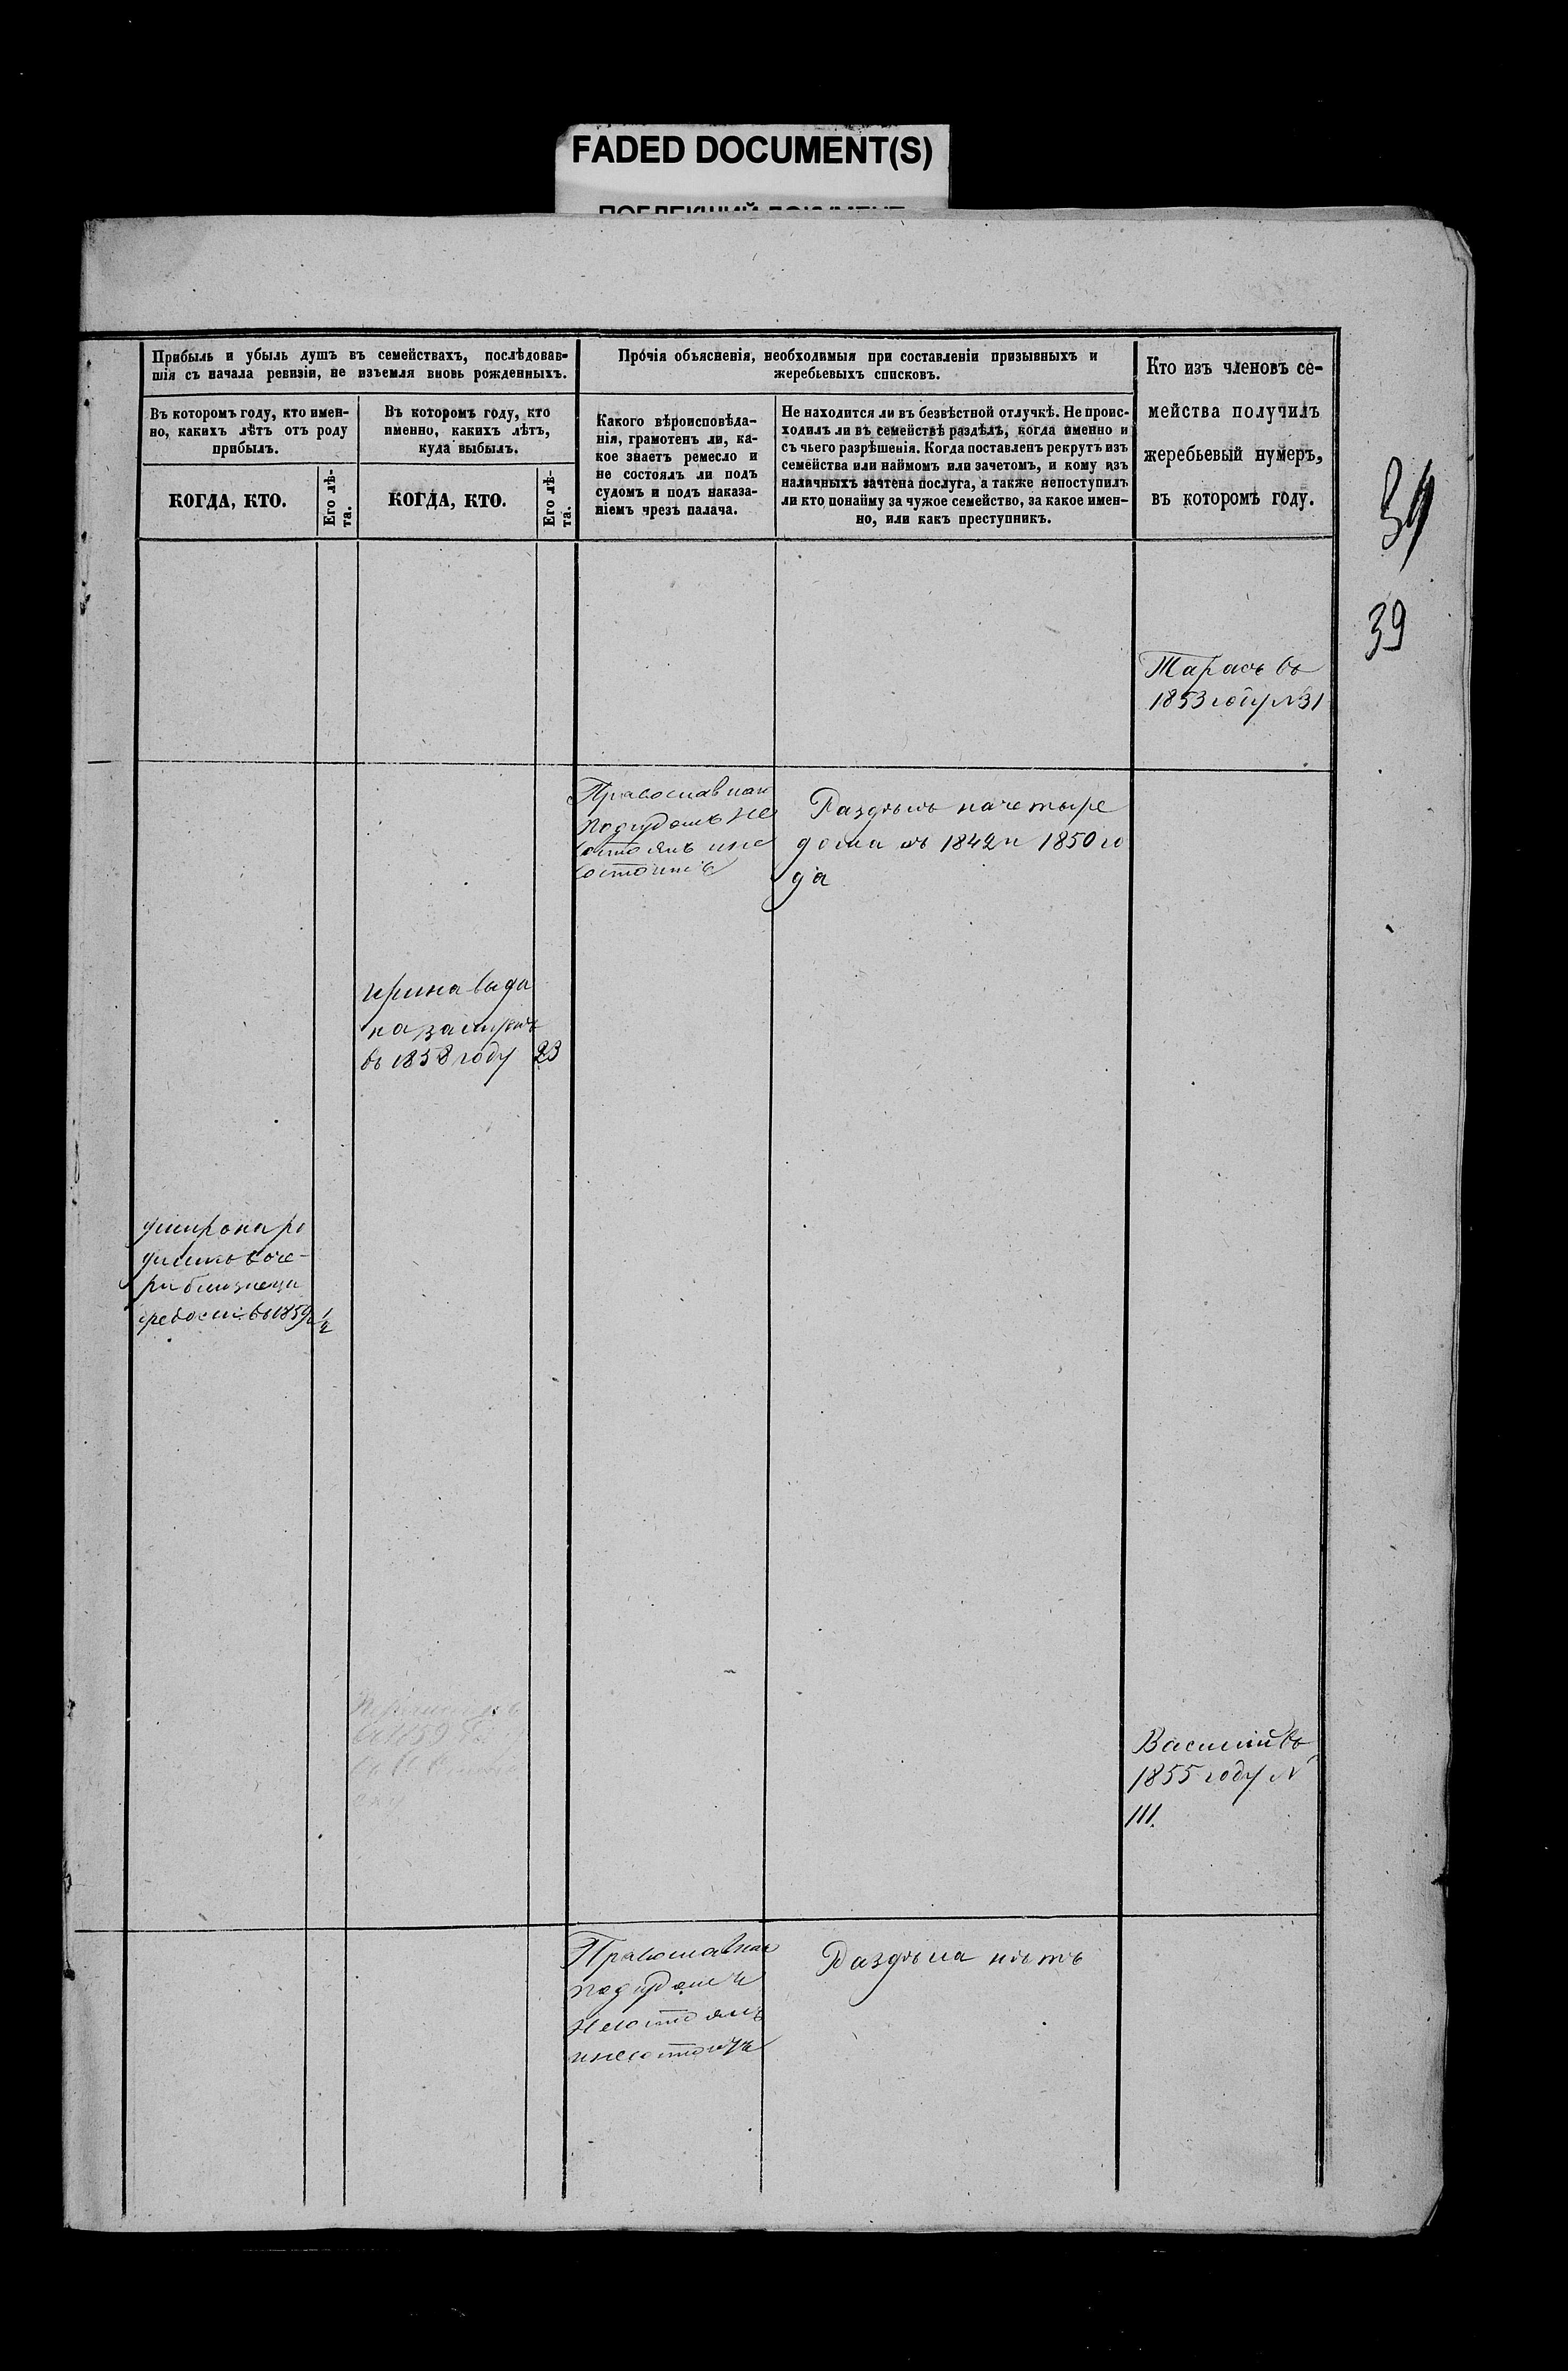 FADED DOCUMENT(S)
Прибыль и убыль душъ въ семействахъ, послѣдовав-
шія съ начала ревизіи, не изъемля вновь рожденныхъ.
Прочія объясненія, необходимыя при составленіи призывныхъ и
жеребьевыхъ списковъ.
Кто изъ членовъ се-
мейства получилъ
жеребьевый нумеръ,
въ которомъ году.
Въ которомъ году, кто имен-
но, какихъ лѣтъ отъ роду
прибылъ.
Въ которомъ году, кто
именно, какихъ лѣтъ,
куда выбылъ.
Какого вѣроисповѣда-
нія, грамотенъ ли, ка-
кое знаетъ ремесло и
не состоялъ ли подъ
судомъ и подъ наказа-
ніемъ чрезъ палача.
Не находится ли въ безвѣстной отлучкѣ. Не проис-
ходилъ ли въ семействѣ раздѣлъ, когда именно и
съ чьего разрѣшенія. Когда поставленъ рекрутъ изъ
семейства или наймомъ или зачетомъ, и кому изъ
наличныхъ зачтена послуга, а также непоступилъ
ли кто понайму за чужое семейство, за какое имен-
но, или какъ преступникъ.
КОГДА, КТО.
Его лѣ-
та.
КОГДА, КТО.
Его лѣ-
та.
39
Тарасъ въ
1853 году № 31
Православная
подсудомъ не
состоялъ ине
состоитъ
Раздѣлъ начетыре
дома съ 1842 и 1850 го
да
Ирина выда
на взамужъ
въ 1858 году 23
въ 1859 1/2
въ 1859
Василий въ
1855 году №
111.
Православная
подсудомъ
Несостоялъ
инесостоитъ
Раздѣла нѣтъ